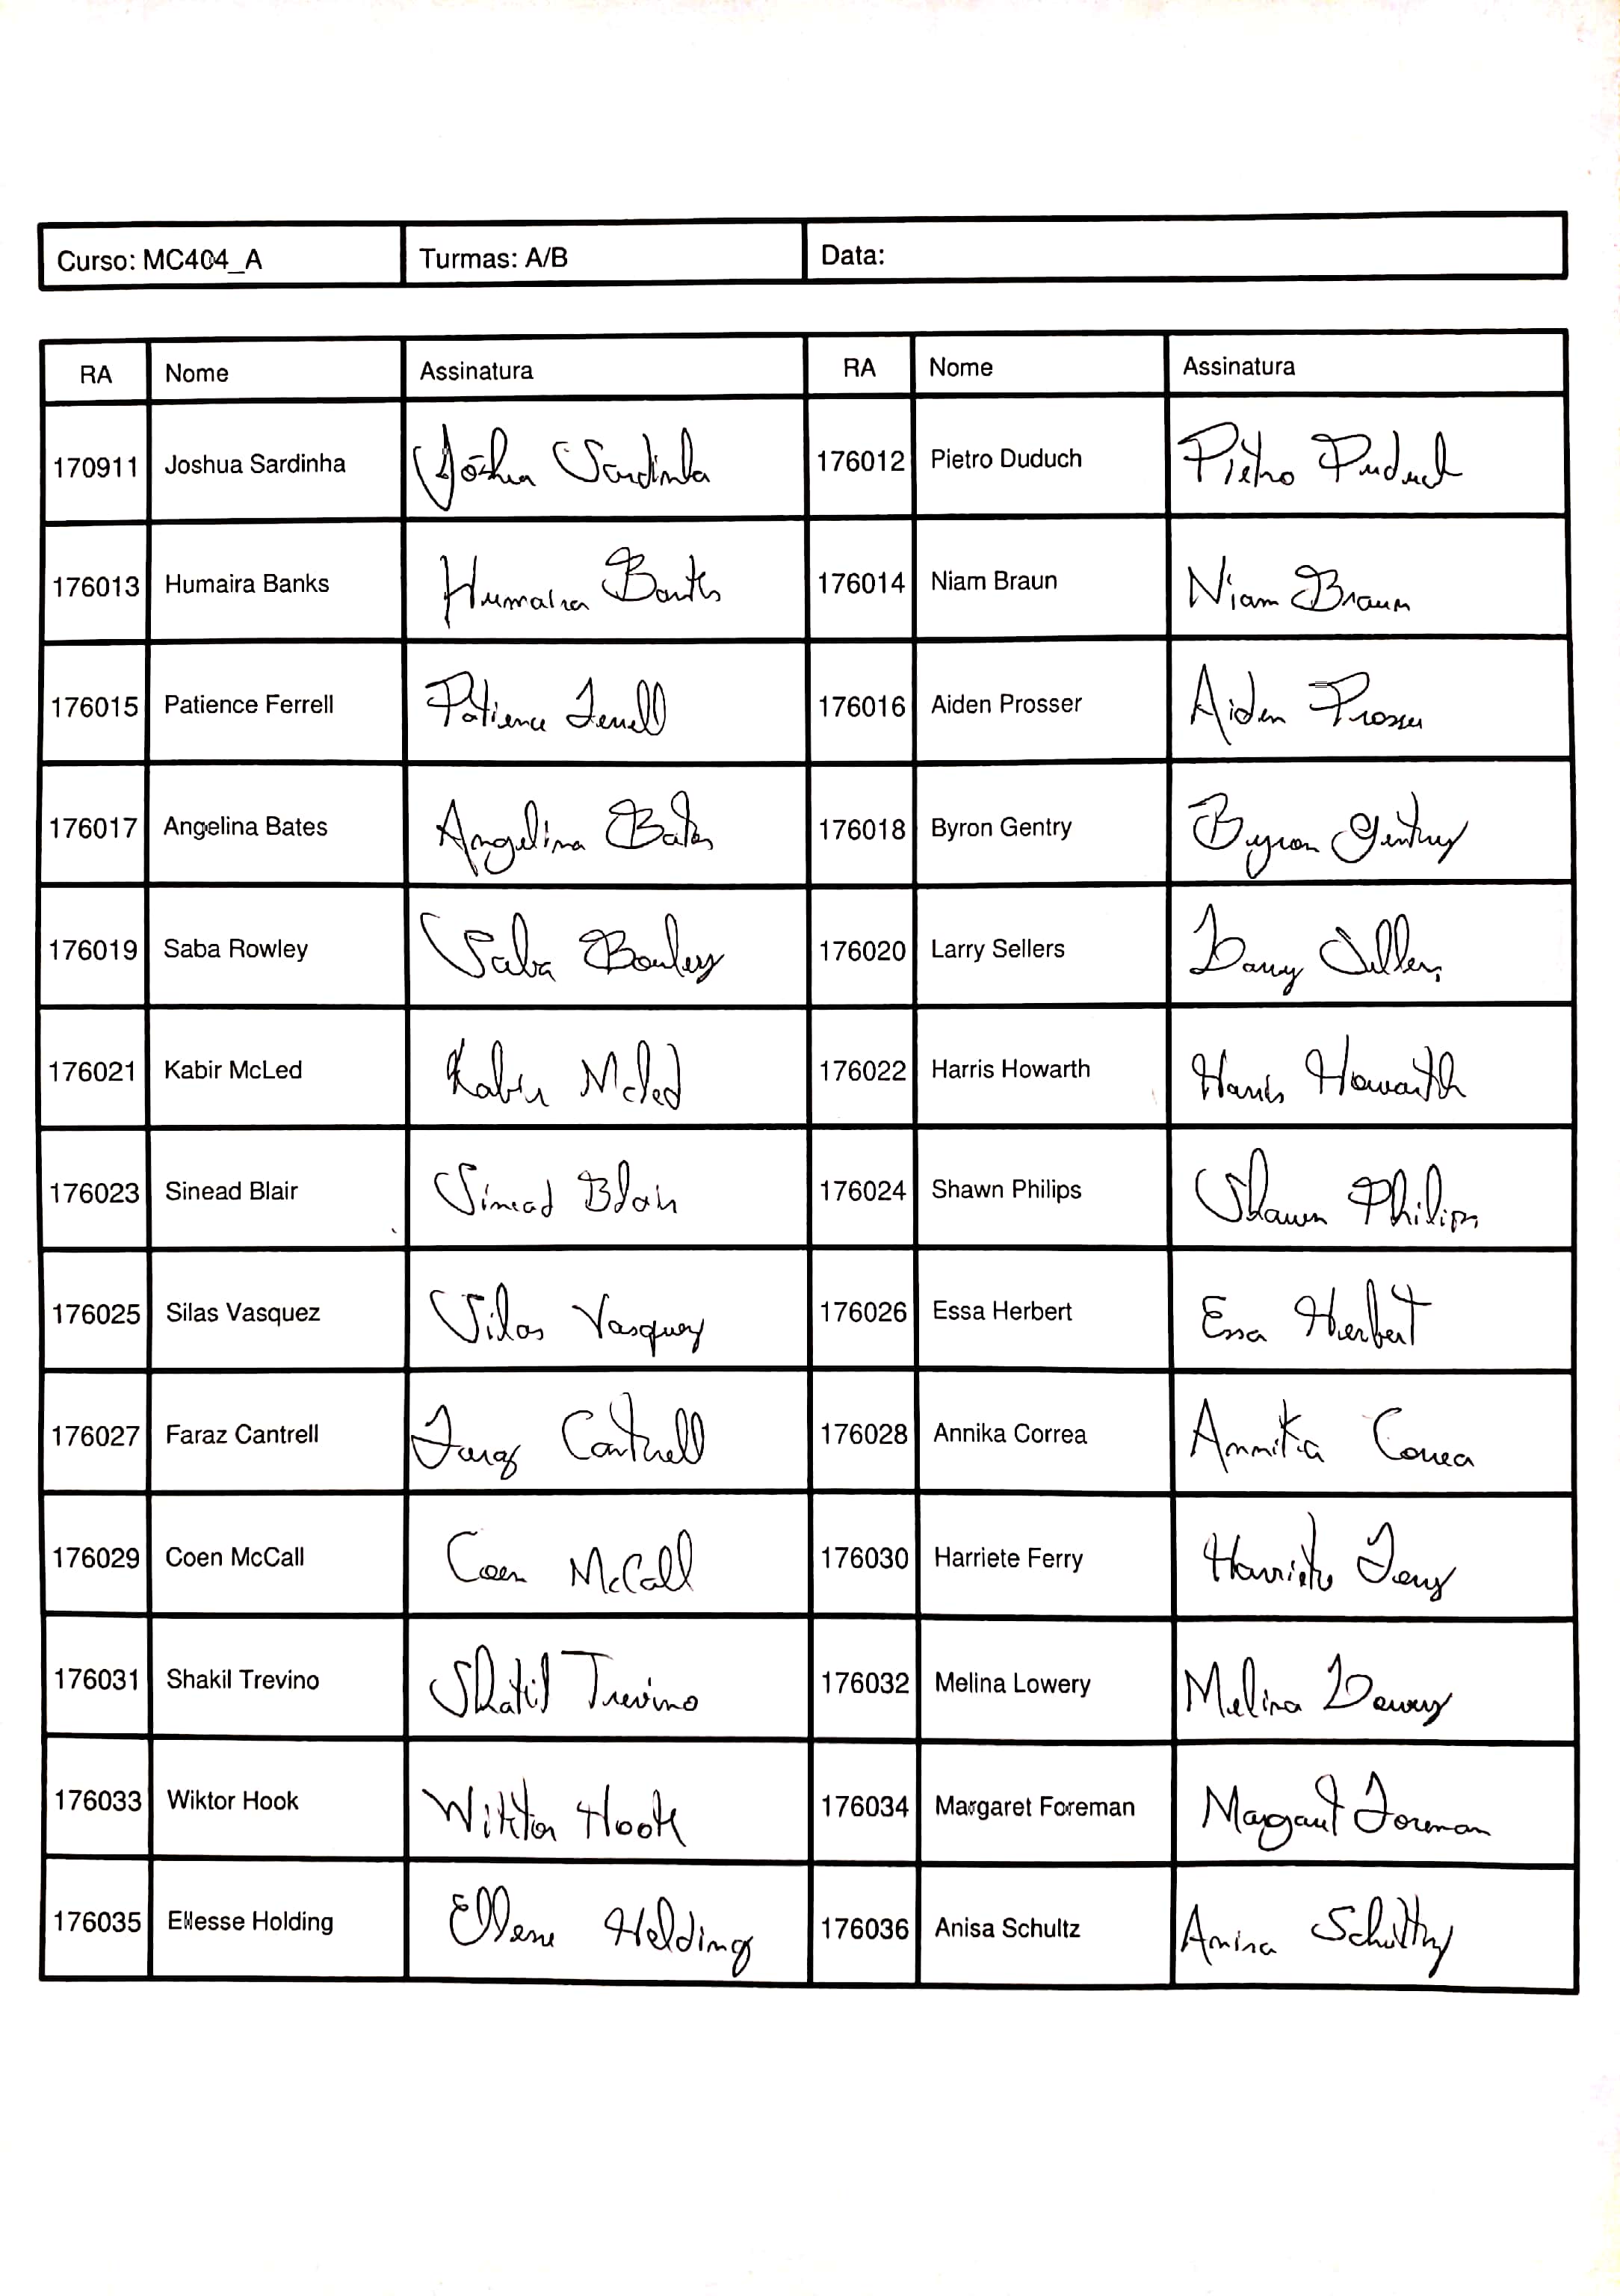 Curso: MC404_A Turmas: A/B Data:
RA Nome Assinatura RA Nome Assinatura
170911 Joshua Sardinha Joshua Sardinha 176012 Pietro Duduch Pietro Duduch
176013 Humaira Banks Humaira Banks 176014 Niam Braun Niam Braun
176015 Patience Ferrell Patience Ferrell 176016 Aiden Prosser Aiden Prosser
176017 Angelina Bates Angelina Bates 176018 Byron Gentry Byron Gentry
176019 Saba Rowley Saba Rowley 176020 Larry Sellers Larry Sellers
176021 Kabir McLed Kabir McLed 176022 Harris Howarth Harris Howarth
176023 Sinead Blair Sinead Blair 176024 Shawn Philips Shawn Philips
176025 Silas Vasquez Silas Vasquez 176026 Essa Herbert Essa Herbert
176027 Faraz Cantrell Faraz Cantrell 176028 Annika Correa Annika Correa
176029 Coen McCall Coen McCall 176030 Harriete Ferry Harriete Ferry
176031 Shakil Trevino Shakil Trevino 176032 Melina Lowery Melina Lowery
176033 Wiktor Hook Wiktor Hook 176034 Margaret Foreman Margaret Foreman
176035 Ellesse Holding Ellesse Holding 176036 Anisa Schultz Anisa Schultz